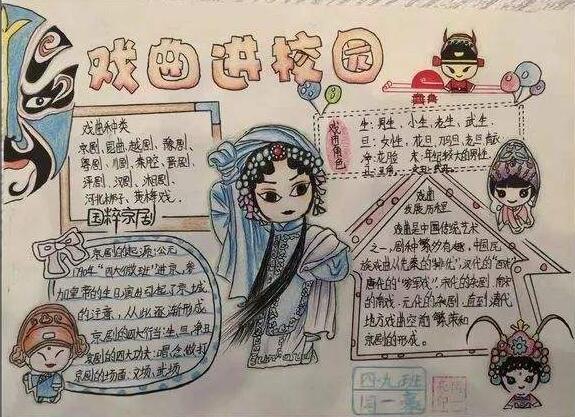 戏曲进校园
戏曲种类
京剧、昆曲、越剧、豫剧、
粤剧、川剧、秦腔、晋剧、
评剧、汉剧、湘剧、
河北梆子、黄梅戏。
国粹京剧
京剧的起源:公元
1790年“四大徽班”进京,参
加皇帝的生日演出引起了京城
的注意,从此逐渐形成
京剧的四大行当:生、旦、净、丑
京剧的四大功夫:唱、念、做、打
京剧的场面:文场、武场
戏曲角色
生:男生、小生、老生、武生。
旦:女性、花旦、刀马旦、老旦、青衣
净:花脸 末:年纪较大的男性。
丑:丑角、文丑、武丑
戏曲
发展历程
戏曲是中国传统艺术
之一,剧种繁多有趣,中国民
族戏曲从先秦的“俳优”、汉代的“百戏”
唐代的“参军戏”、宋代的杂剧、南宋
的南戏、元代的杂剧,直到清代
地方戏曲空前繁荣和
京剧的形成。
四九班
周一